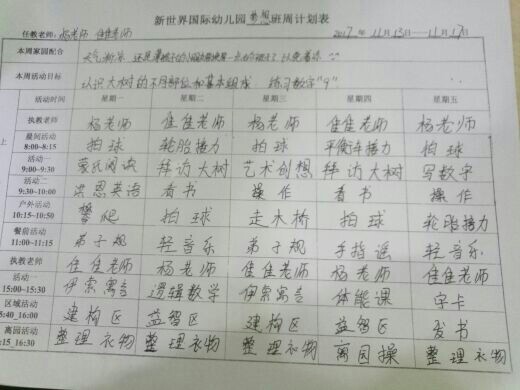 新世界国际幼儿园 班周计划表
任教老师：杨老师 佳佳老师 2017年11月13日——11月17日
本周家园配合 天气渐凉
本周活动目标 认识大树的不同部位和基本组成 练习数字"9"
活动时间 星期一 星期二 星期三 星期四 星期五
执教老师 杨老师 佳佳老师 杨老师 佳佳老师 杨老师
上
晨间活动 8:00~8:15 拍球 轮胎接力 拍球 平衡车接力 拍球
活动一 9:00~9:30 蒙氏阅读 拜访大树 艺术创想 拜访大树 写数字
活动二 9:30~10:00 洪恩英语 看书 操作 看书 操作
户外活动 10:15~10:50 攀爬 拍球 走木桥 拍球 轮胎接力
餐前活动 11:00~11:15 弟子规 轻音乐 弟子规 手指谣 轻音乐
执教老师 佳佳老师 杨老师 佳佳老师 杨老师 佳佳老师
活动一 15:00~15:30 伊索寓言 逻辑数学 伊索寓言 体能课 字卡
区域活动 5:40_16:00 建构区 益智区 建构区 益智区 发书
离园活动 :15_16:30 整理衣物 整理衣物 整理衣物 离园操 整理衣物